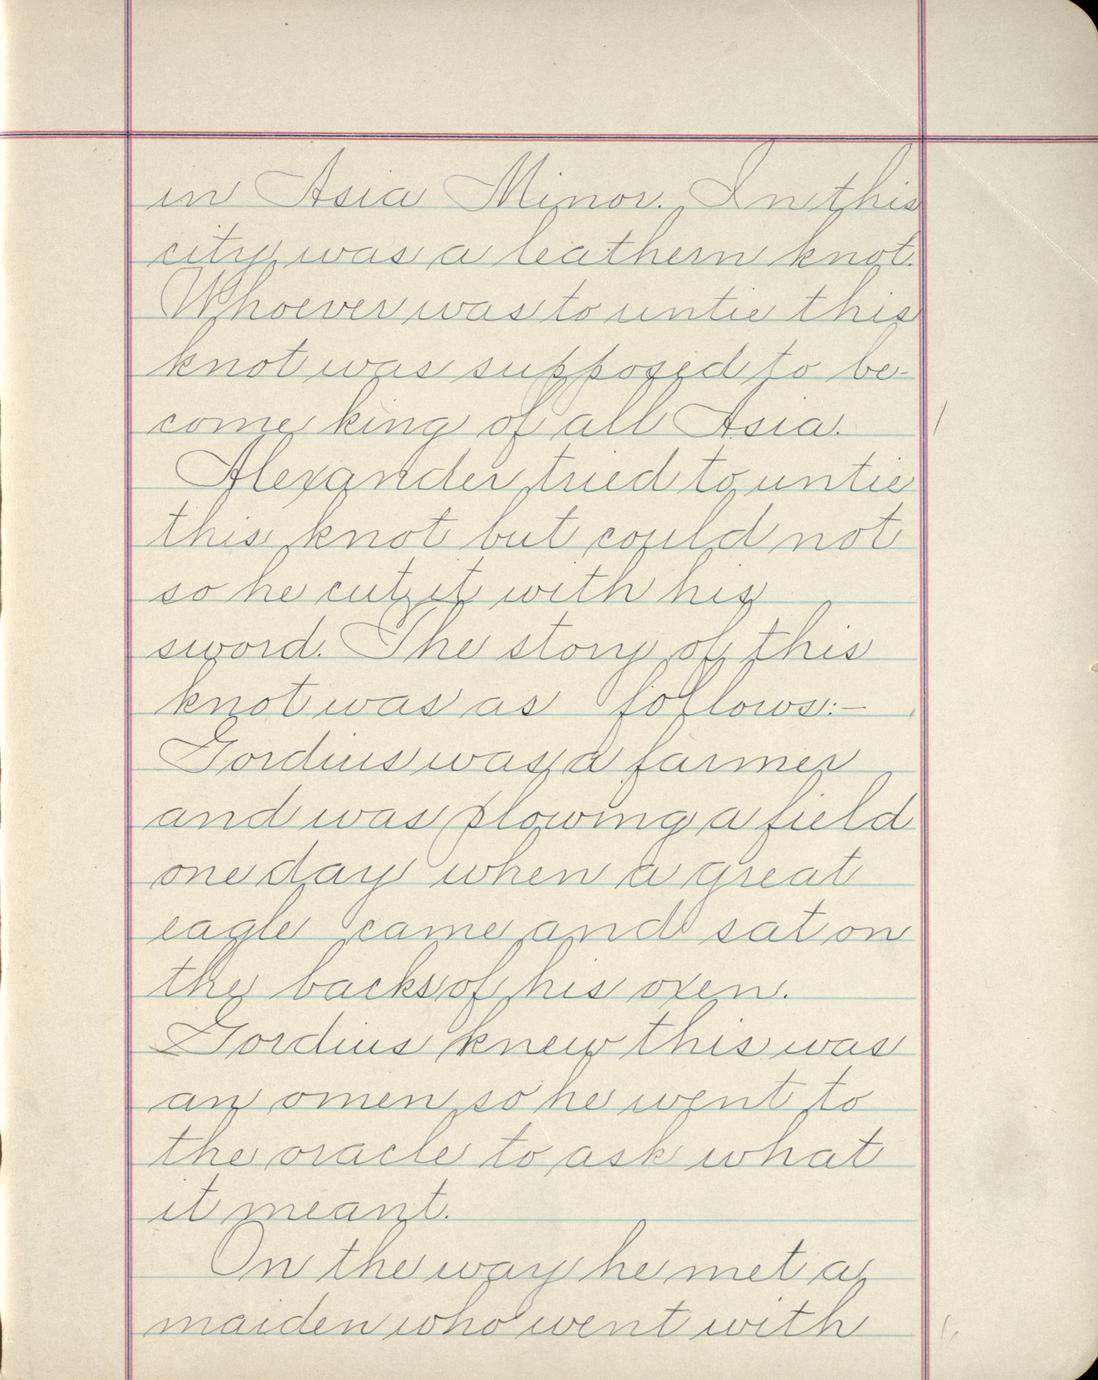 in Asia Minor. In this
city was a leathern knot.
Whoever was to untie this
knot was supposed to be-
come king of all Asia.
Alexander tried to untie
this knot but could not
so he cut it with his
sword. The story of this
knot was as follows:-
Gordius was a farmer
and was plowing a field
one day when a great
eagle came and sat on
the backs of his oxen.
Gordius knew this was
an omen so he went to
the oracle to ask what
it meant.
On the way he met a
maiden who went with